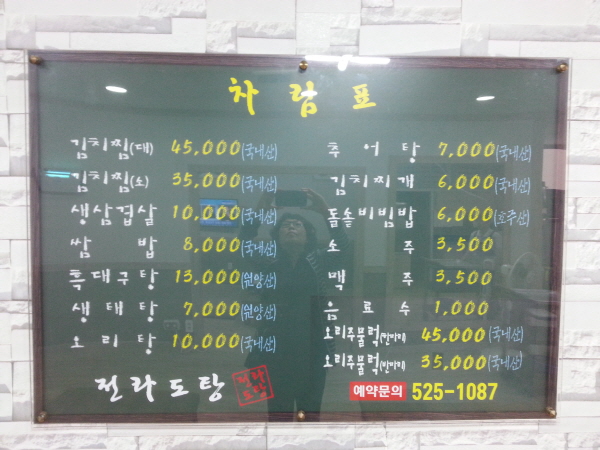 차림표
김치찜(대) 45,000(국내산)
김치찜(소) 35,000(국내산)
생삼겹살 10,000(국내산)
쌈밥 8,000(국내산)
흑대구탕 13,000(원양산)
생태탕 7,000(원양산)
오리탕 10,000(국내산)
전라도탕
추어탕 7,000(국내산)
김치찌개 6,000(국내산)
돌솥비빔밥 6,000(호주산)
소주 3,500
맥주 3,500
음료수 1,000
오리주물럭(한마리) 45,000(국내산)
오리주물럭(반마리) 35,000(국내산)
예약문의 525-1087